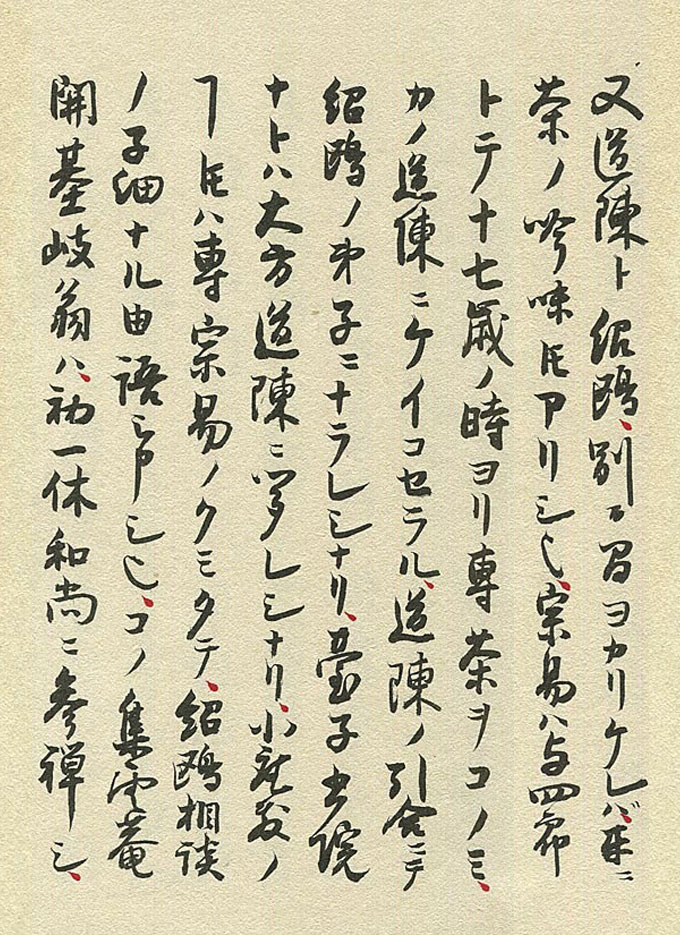 又道陳ト紹鴎、別〆間ヨカリケレバ、互ニ
茶ノ吟味𪜈アリシ也、宗易ハ与四郎
トテ十七歳ノ時ヨリ専茶ヲコノミ、
カノ道陳ニケイコセラル、道陳ノ引合ニテ
紹鴎ノ弟子ニナラレシナリ、臺子書院
ナトハ大方道陳ニ聞レシナリ、小座敷ノ
ヿ𪜈ハ専宗易ノクミタテ、紹鴎相談
ノ子細ナル由語申シ也、コノ集雲菴
開基岐翁ハ、初一休和尚ニ参禅シ、